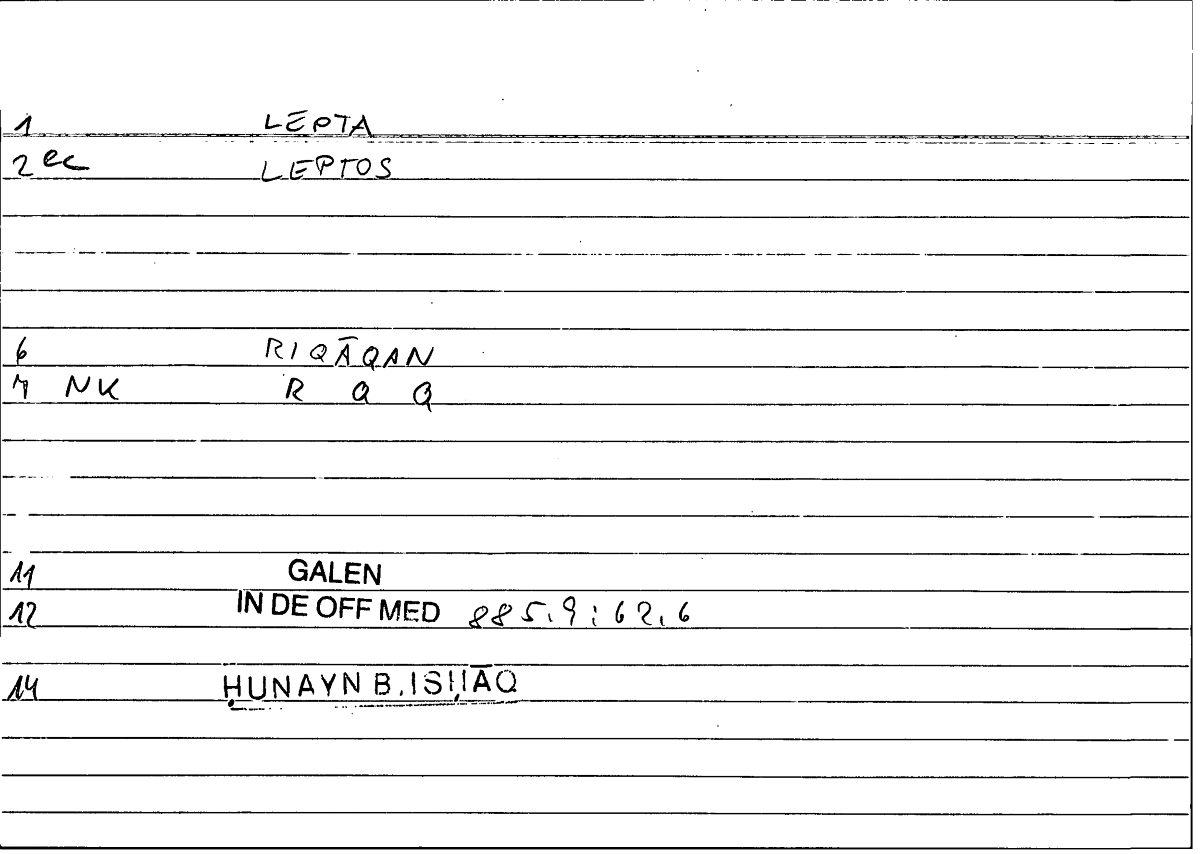 1 LEPTA
2 ec LEPTOS
6 RIQĀQAN
7 NK R Q Q
11 GALEN
12 IN DE OFF MED 885.9:62.6
14 ḤUNAYN B. ISḤĀQ